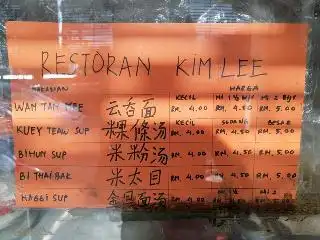 RESTORAN KIM LEE
MAKANAN HARGA
KECIL MI 1½ BIJI MI 2 BIJI
WAN TAN MEE 云吞面 RM. 4.00 RM. 4.50 RM. 5.00
KECIL SEDANG BESAR
KUEY TEAW SUP 粿條汤 RM. 4.00 RM. 4.50 RM. 5.00
BIHUN SUP 米粉汤 RM. 4.00 RM. 4.50 RM. 5.00
BI THAI BAK 米太目 RM. 4.00 RM. 4.50 RM. 5.00
MI 1½ MI 2
MAGGI SUP 面汤 RM. 4.00 RM. 4.50 RM. 5.00